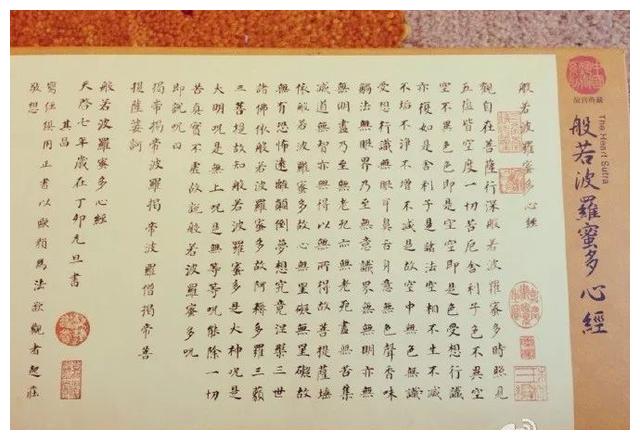 The Heart Sutra
般若波羅蜜多心經
般若波羅蜜多心經
觀自在菩薩行深般若波羅蜜多時照見
五蘊皆空度一切苦厄舍利子色不異空
空不異色色即是空空即是色受想行識
亦復如是舍利子是諸法空相不生不滅
不垢不淨不增不減是故空中無色無
受想行識無眼耳鼻舌身意無色聲香味
觸法無眼界乃至無意識界無無明亦無
無明盡乃至無老死亦無老死盡無苦集
滅道無智亦無得以無所得故菩提薩埵
依般若波羅蜜多故心無罣礙無罣礙故
無有恐怖遠離顛倒夢想究竟涅槃三世
諸佛依般若波羅蜜多故阿耨多羅三藐
三菩提故知般若波羅蜜多是大神呪是
大明呪是無上呪是無等等呪能除一切
苦真實不虛故說般若波羅蜜多呪
即說呪曰
揭帝揭帝波羅揭帝波羅僧揭帝菩
提薩婆訶
般若波羅蜜多心經
天啓七年歲在丁卯元旦書
其昌
寫經用正書以歐顏為法欲觀者起莊
敬想